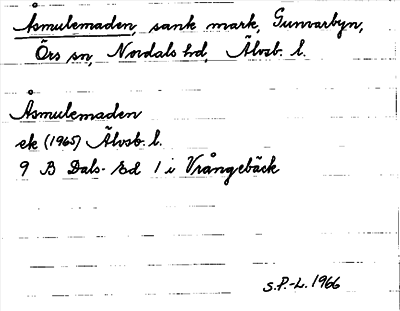 Åsmulemaden, sank mark, Gunvarbyn,
Örs sn, Nordals hd, Älvsb. l.
Åsmulemaden
ek (1965) Älvsb. l.
9 B Dals-Ed 1 i Vrångebäck
S.P.-L. 1966